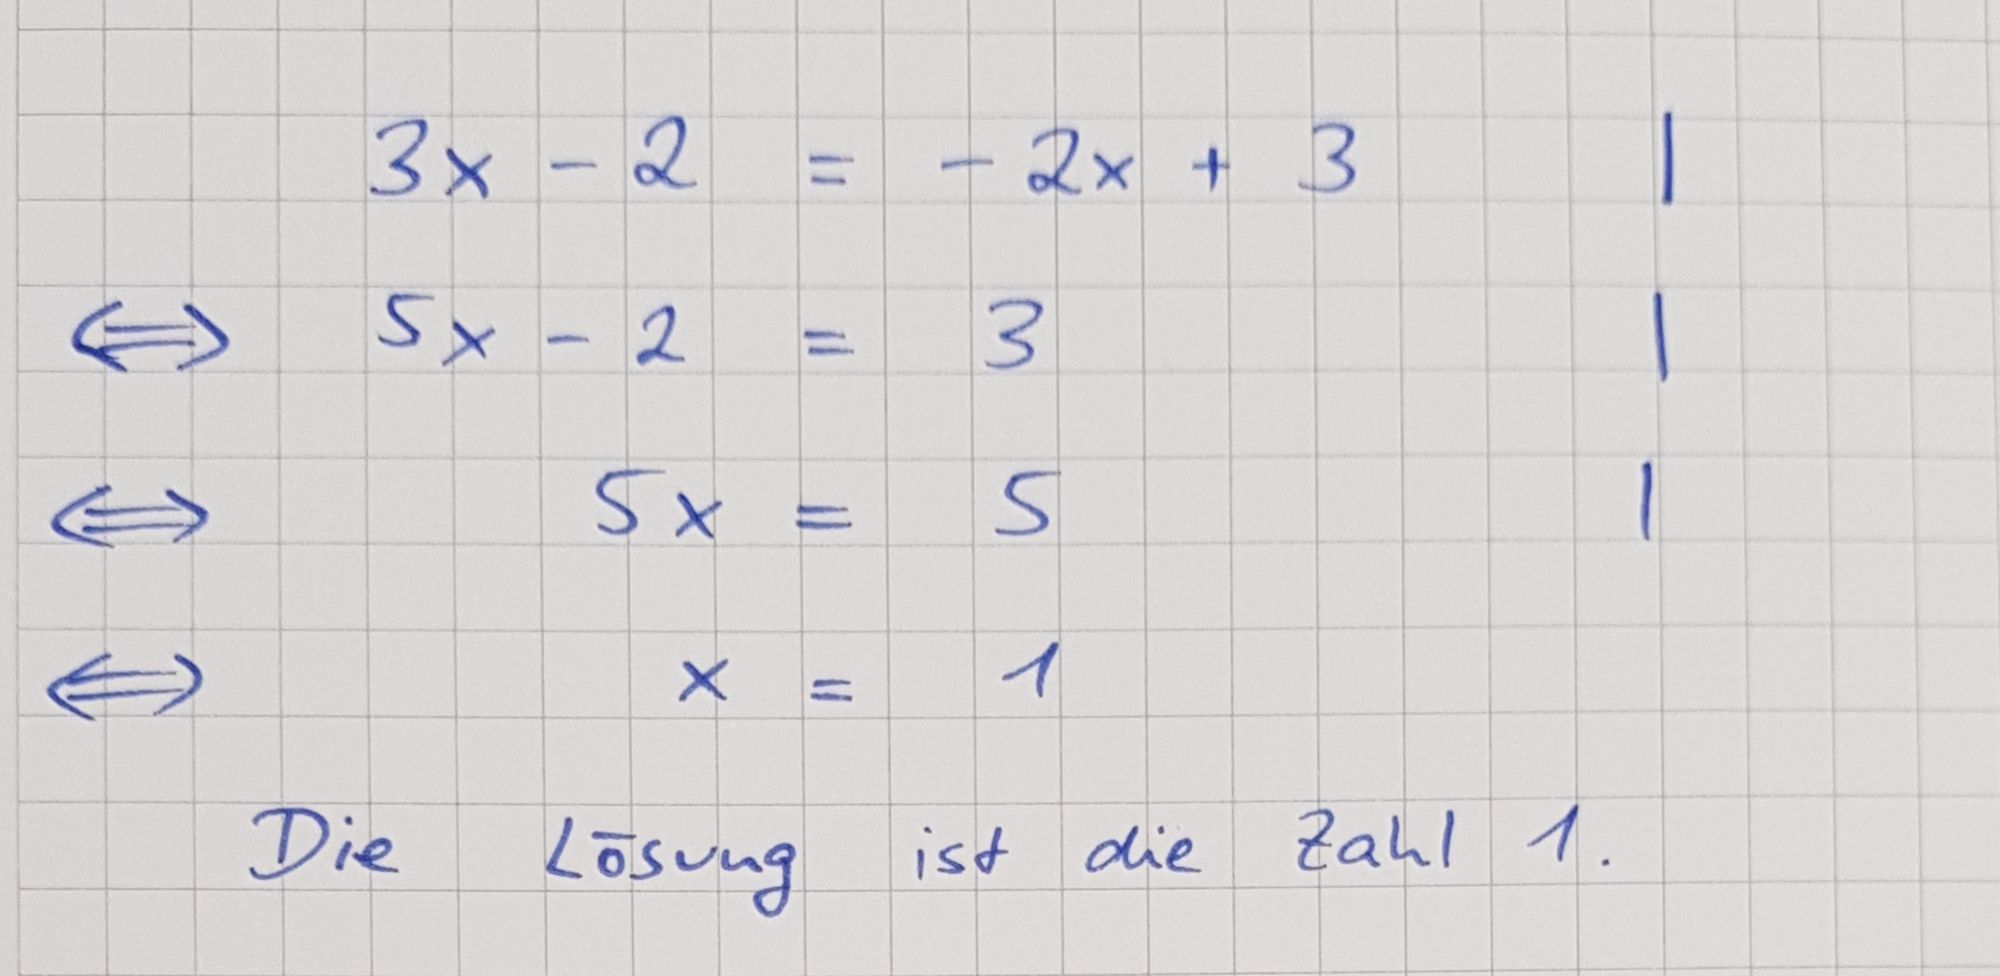 3x - 2 = - 2x + 3 |
⟺ 5x - 2 = 3 |
⟺ 5x = 5 |
⟺ x = 1
Die Lösung ist die Zahl 1.